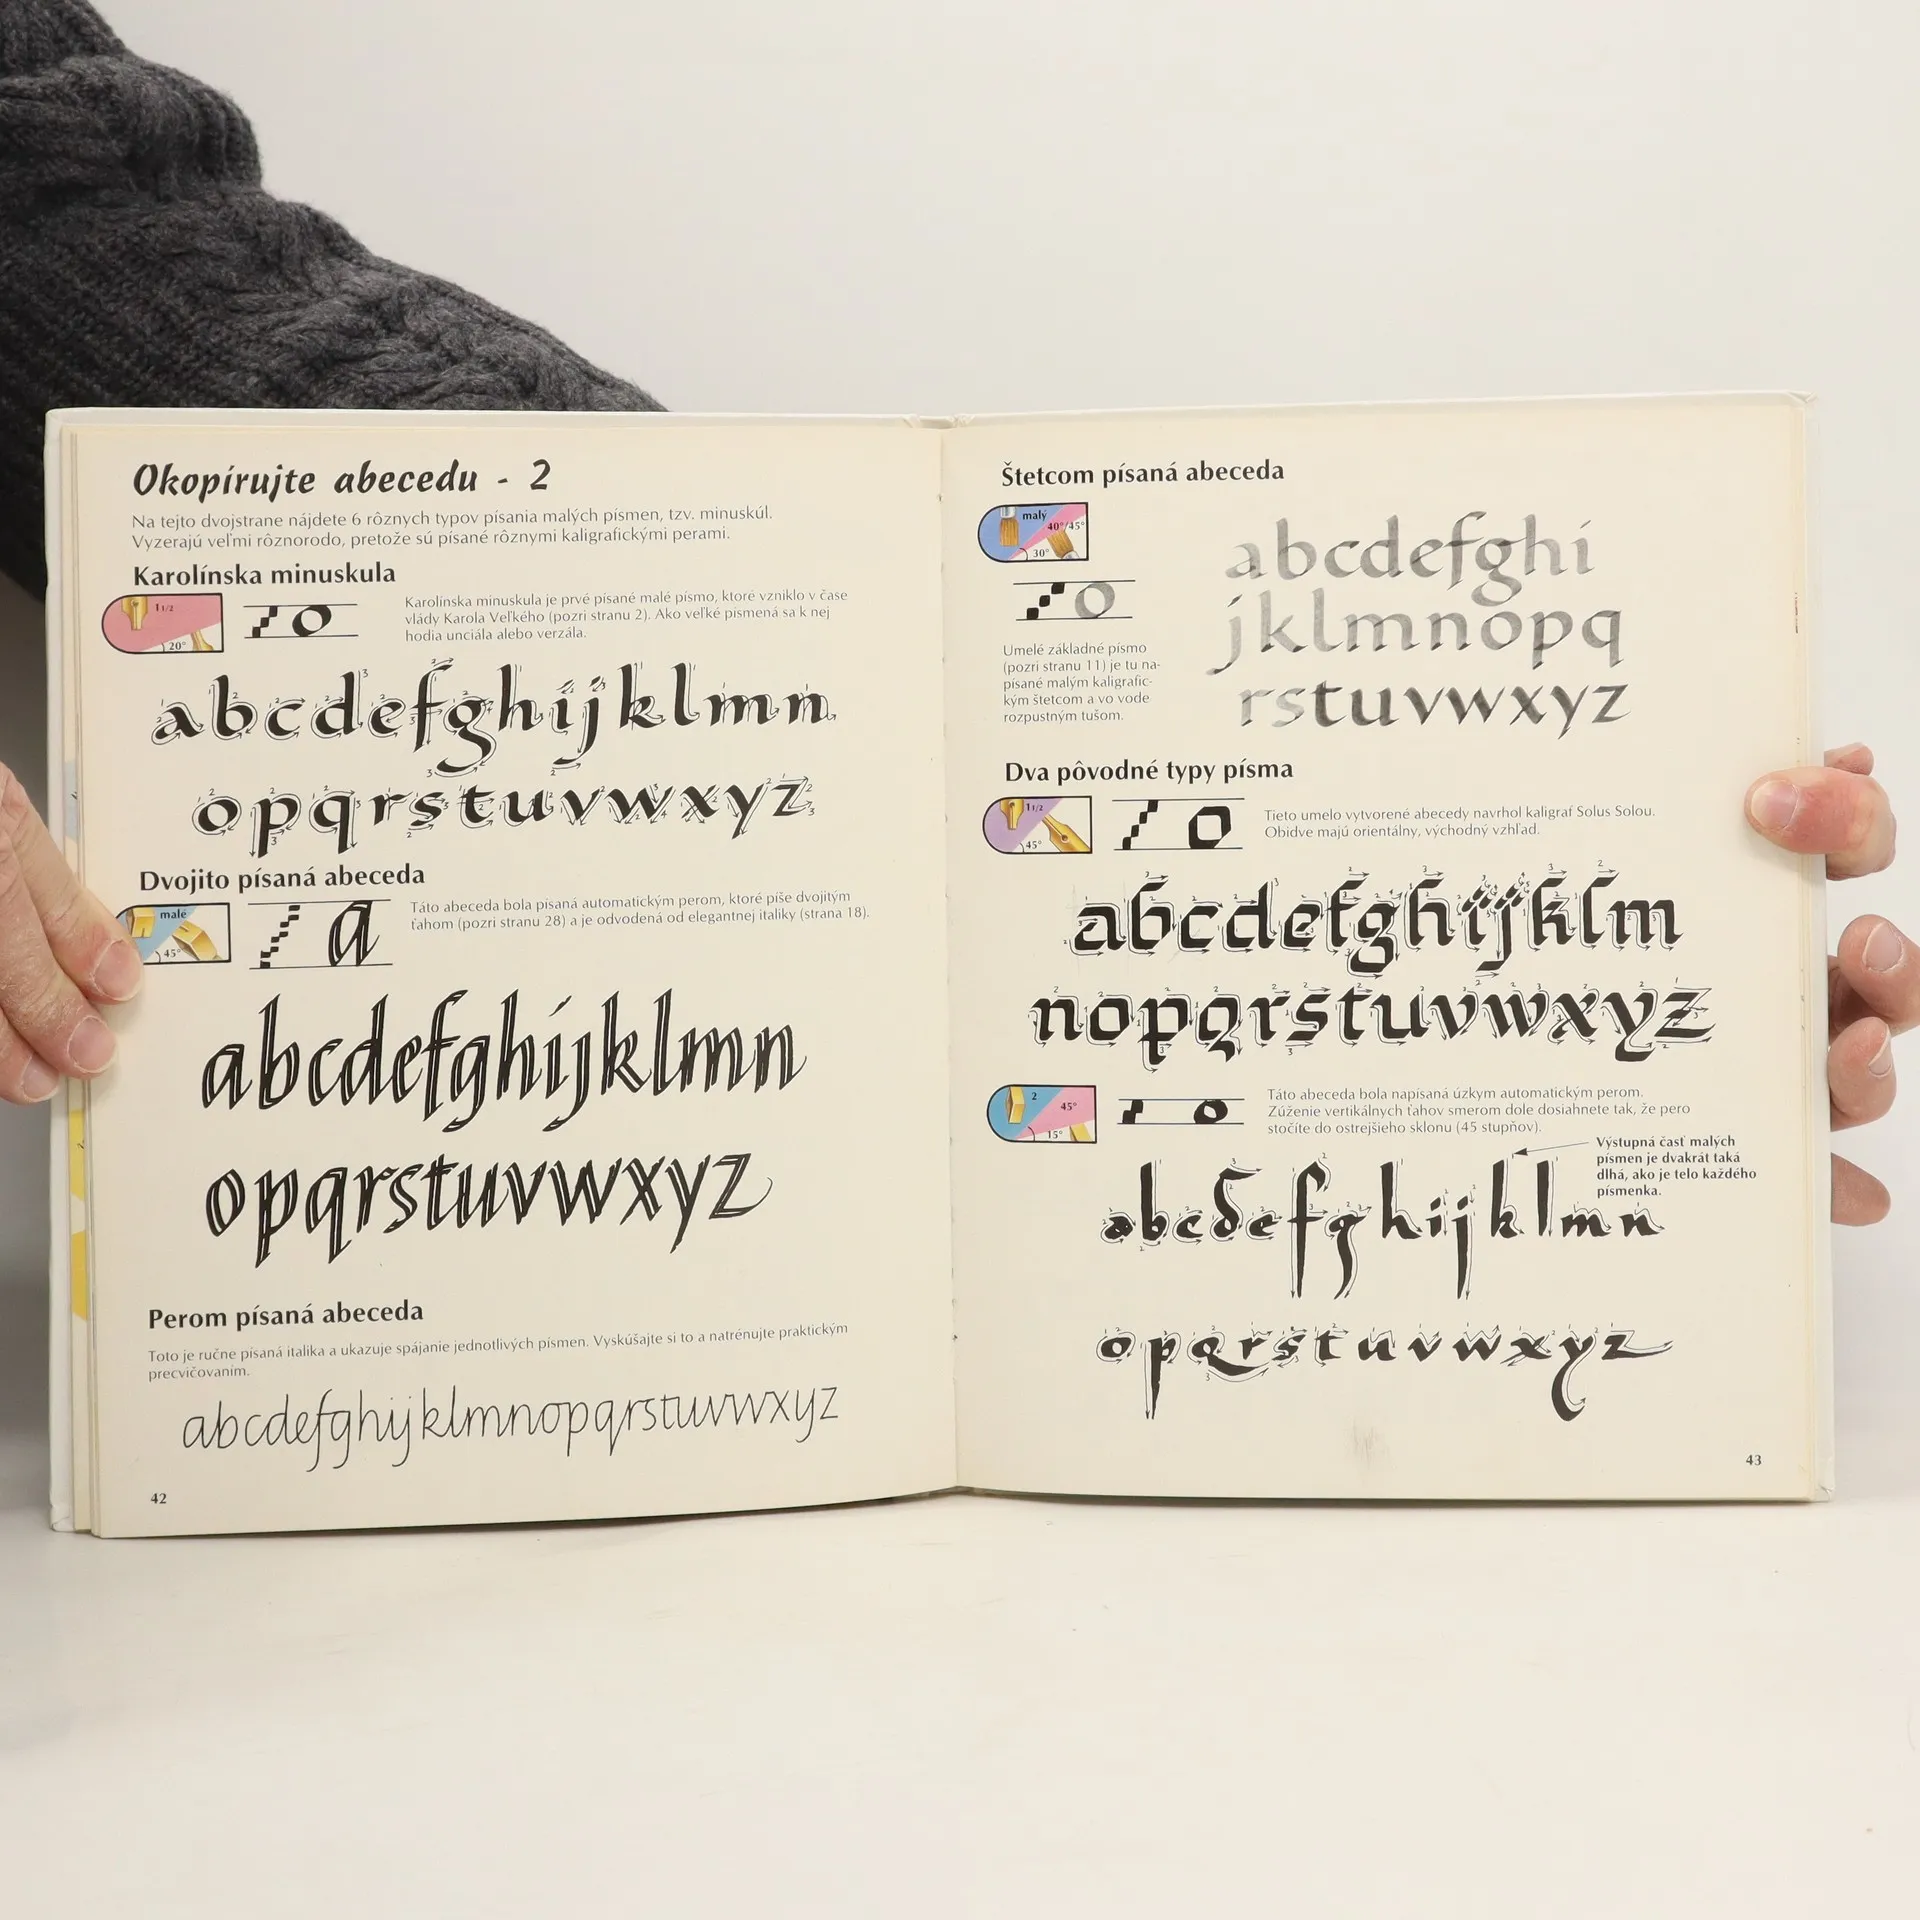 Okopírujte abecedu - 2
Na tejto dvojstrane nájdete 6 rôznych typov písania malých písmen, tzv. minuskúl.
Vyzerajú veľmi rôznorodo, pretože sú písané rôznymi kaligrafickými perami.
Karolínska minuskula
1 1/2
20°
Karolínska minuskula je prvé písané malé písmo, ktoré vzniklo v čase
vlády Karola Veľkého (pozri stranu 2). Ako veľké písmená sa k nej
hodia unciála alebo verzála.
abcdefghijklmn
opqrstuvwxyz
Dvojito písaná abeceda
malé
45°
a
Táto abeceda bola písaná automatickým perom, ktoré píše dvojitým
ťahom (pozri stranu 28) a je odvodená od elegantnej italiky (strana 18).
abcdefghijklmn
opqrstuvwxyz
Perom písaná abeceda
Toto je ručne písaná italika a ukazuje spájanie jednotlivých písmen. Vyskúšajte si to a natrénujte praktickým
precvičovaním.
abcdefghijklmnopqrstuvwxyz
42
Štetcom písaná abeceda
malý
40°/45°
30°
o
Umelé základné písmo
(pozri stranu 11) je tu na-
písané malým kaligrafic-
kým štetcom a vo vode
rozpustným tušom.
abcdefghi
jklmnopq
rstuvwxyz
Dva pôvodné typy písma
1 1/2
45°
o
Tieto umelo vytvorené abecedy navrhol kaligraf Solus Solou.
Obidve majú orientálny, východný vzhľad.
abcdefghijklm
nopqrstuvwxyz
2
45°
15°
o
Táto abeceda bola napísaná úzkym automatickým perom.
Zúženie vertikálnych ťahov smerom dole dosiahnete tak, že pero
stočíte do ostrejšieho sklonu (45 stupňov).
Výstupná časť malých
písmen je dvakrát taká
dlhá, ako je telo každého
písmenka.
abcdefghijklmn
opqrstuvwxyz
43